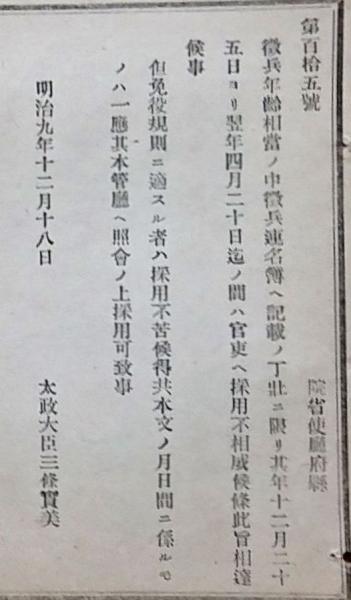 第百拾五號
院省使廳府縣
徵兵年齡相當ノ中徵兵連名簿ヘ記載ノ丁壯ニ限リ其年十二月二十
五日ヨリ翌年四月二十日迄ノ間ハ官吏ヘ採用不相成候條此旨相達
候事
但免役規則ニ適スル者ハ採用不苦候得共本文ノ月日間ニ係ルモ
ノハ一應其本管廳ヘ照會ノ上採用可致事
明治九年十二月十八日
太政大臣三條實美